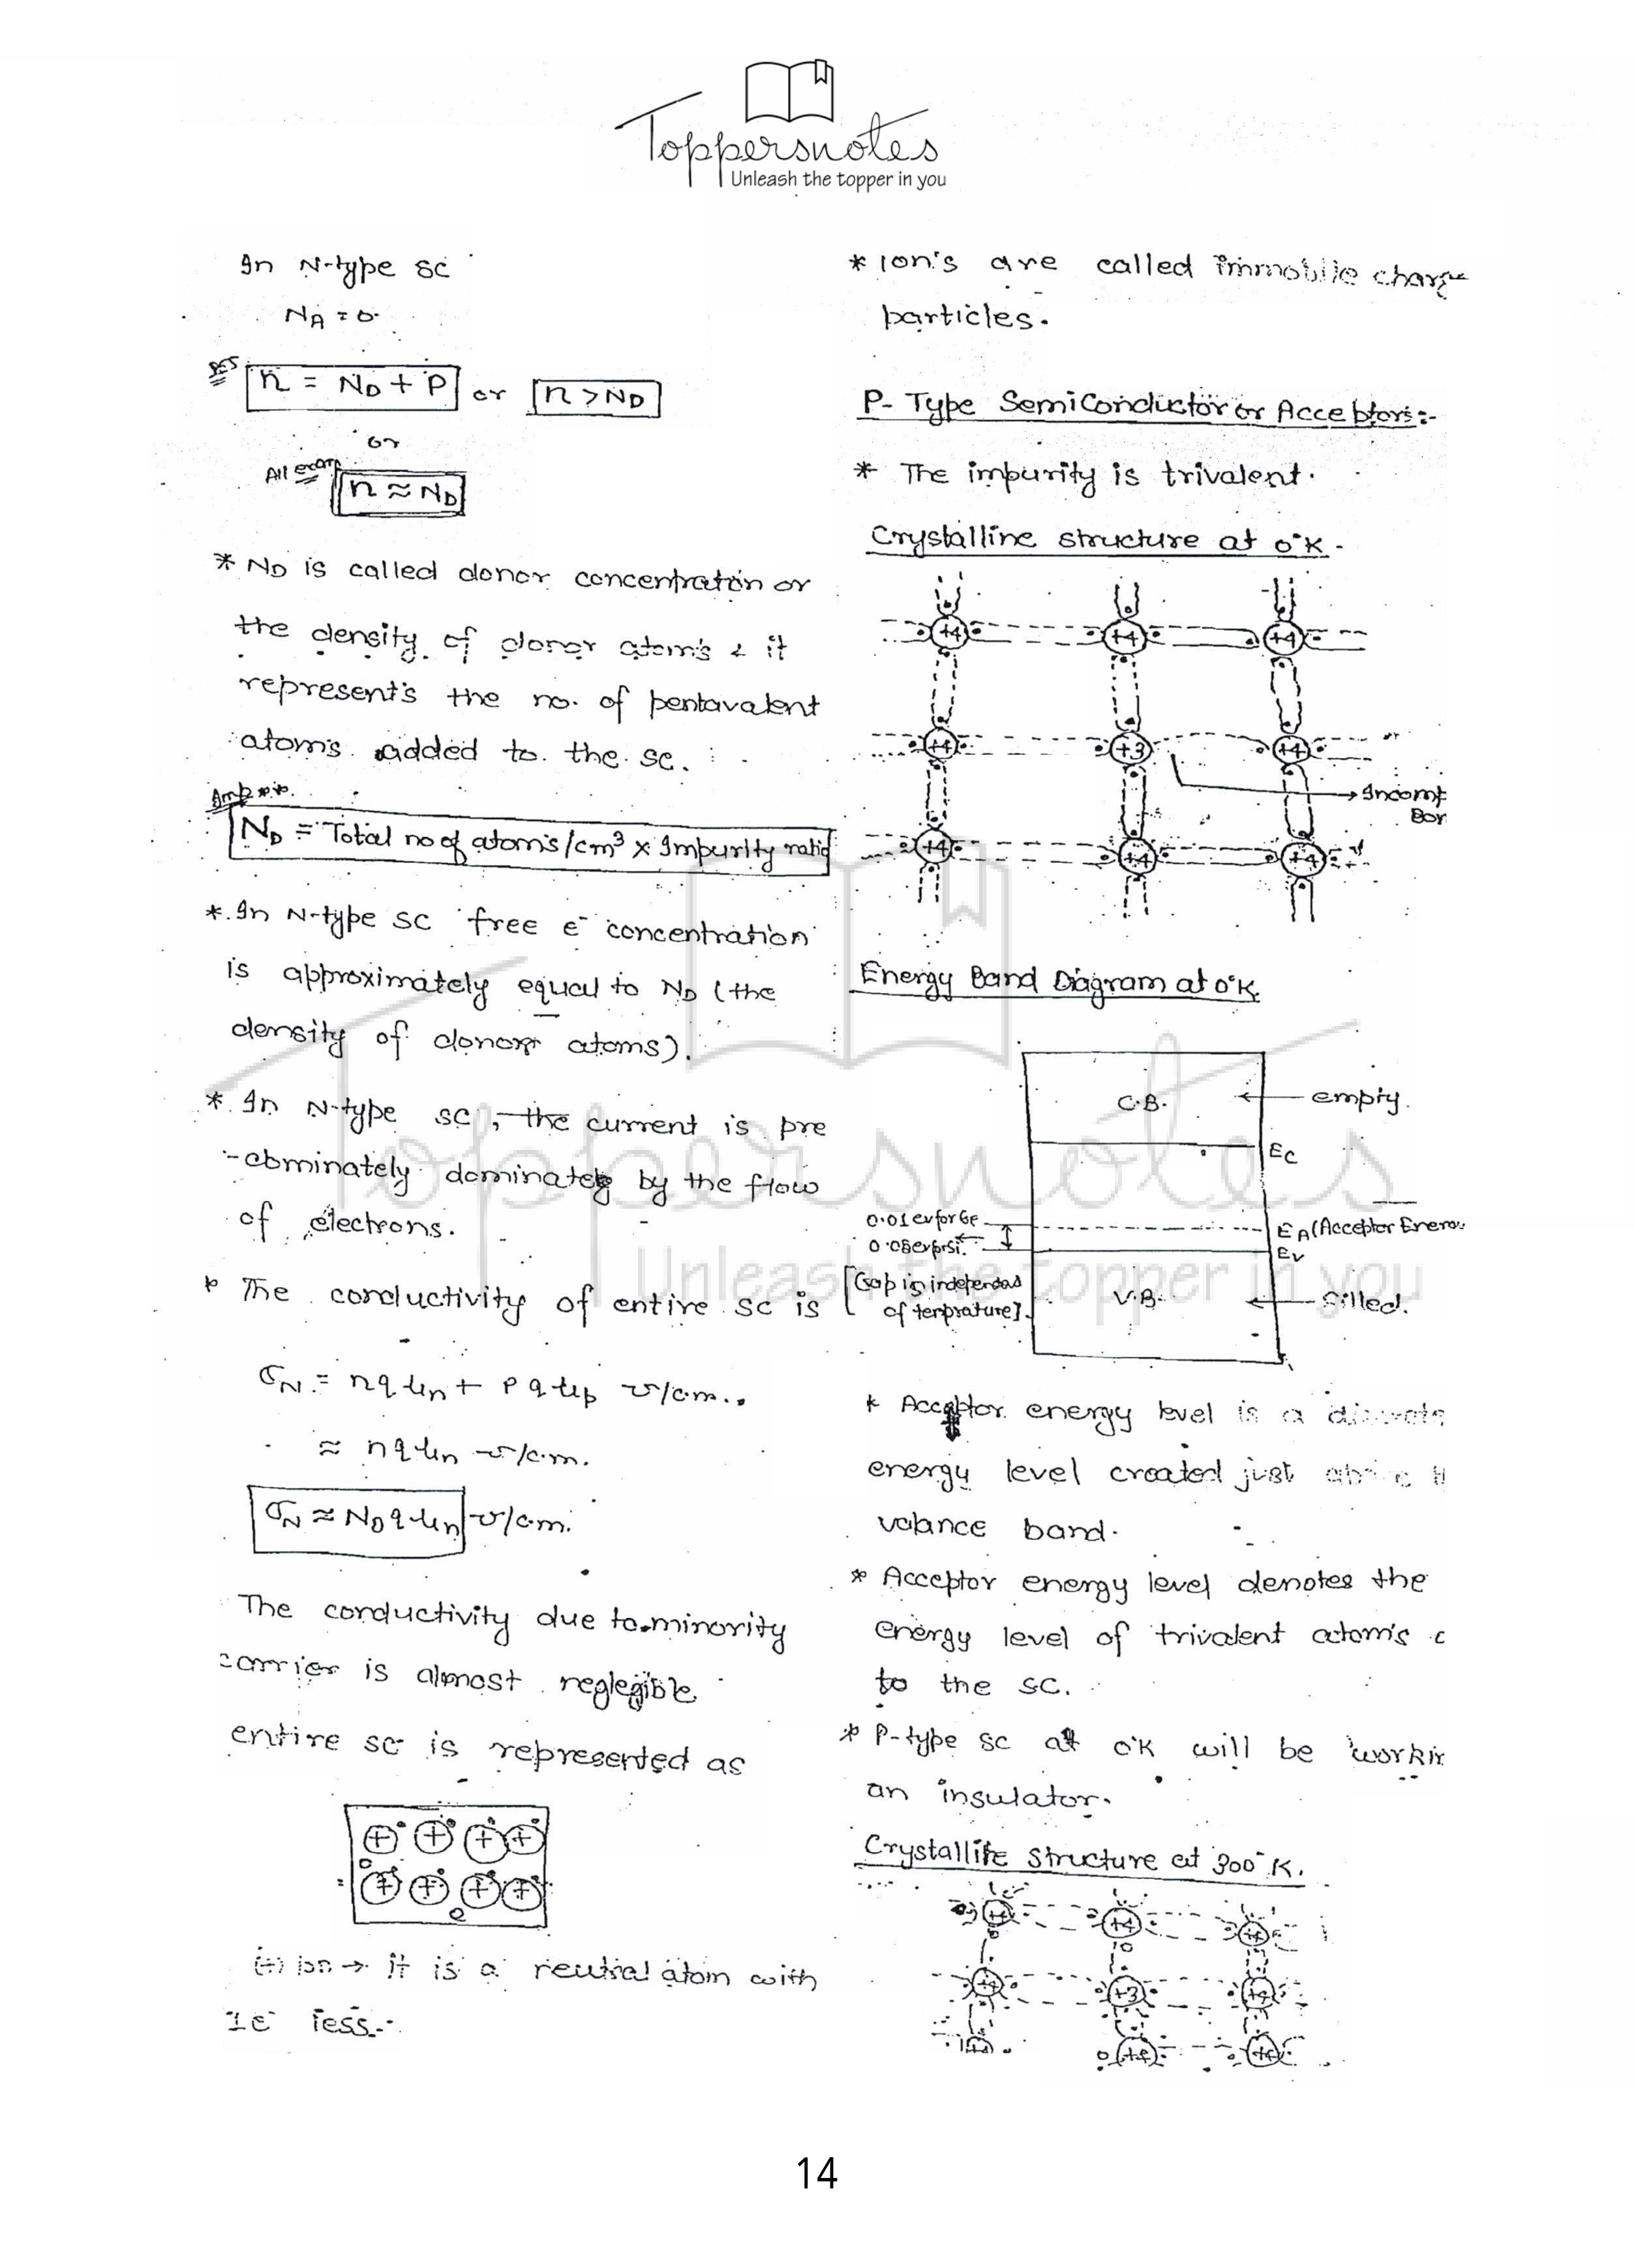 Toppersnotes
Unleash the topper in you
In N-type SC
N_A = 0.
IES n = N_D + P or n > N_D
or
All exam n ≈ N_D
* N_D is called donor concentration or
the density of donor atom's & it
represent's the no. of pentavalent
atom's added to the sc.
Imp **.
N_D = Total no of atom's/cm³ x Impurity ratio
* In N-type SC free e⁻ concentration
is approximately equal to N_D (the
density of donor atoms).
* In N-type SC, the current is pre
-dominately dominated by the flow
of electrons.
* The conductivity of entire SC is
σ_N = nqμ_n + pqμ_p ℧/cm.
≈ nqμ_n ℧/cm.
σ_N ≈ N_D qμ_n ℧/cm.
The conductivity due to minority
carrier is almost neglegible
entire sc is represented as
+ + + +
+ + + +
(+) ion → it is a neutral atom with
1e⁻ less.
* Ion's are called immobile charge
particles.
P-Type SemiConductor or Acceptors:-
* The impurity is trivalent.
Crystalline structure at 0°K -
+4 +4 +4
+4 +3 +4
Incomp
Bon
+4 +4 +4
Energy Band Diagram at 0°K
C.B. empty.
E_C
0.01 ev for Ge E_A (Acceptor Energy
E_V
[Gap is independent
V.B. filled.
of temprature].
* Acceptor energy level is a
energy level created just above
valance band.
* Acceptor energy level denotes the
energy level of trivalent atom's
to the SC.
* P-type SC at 0°K will be workin
an insulator.
Crystallite Structure at 300°K.
+4 +4 +4
+4 +3 +4
+4 +4 +4
14